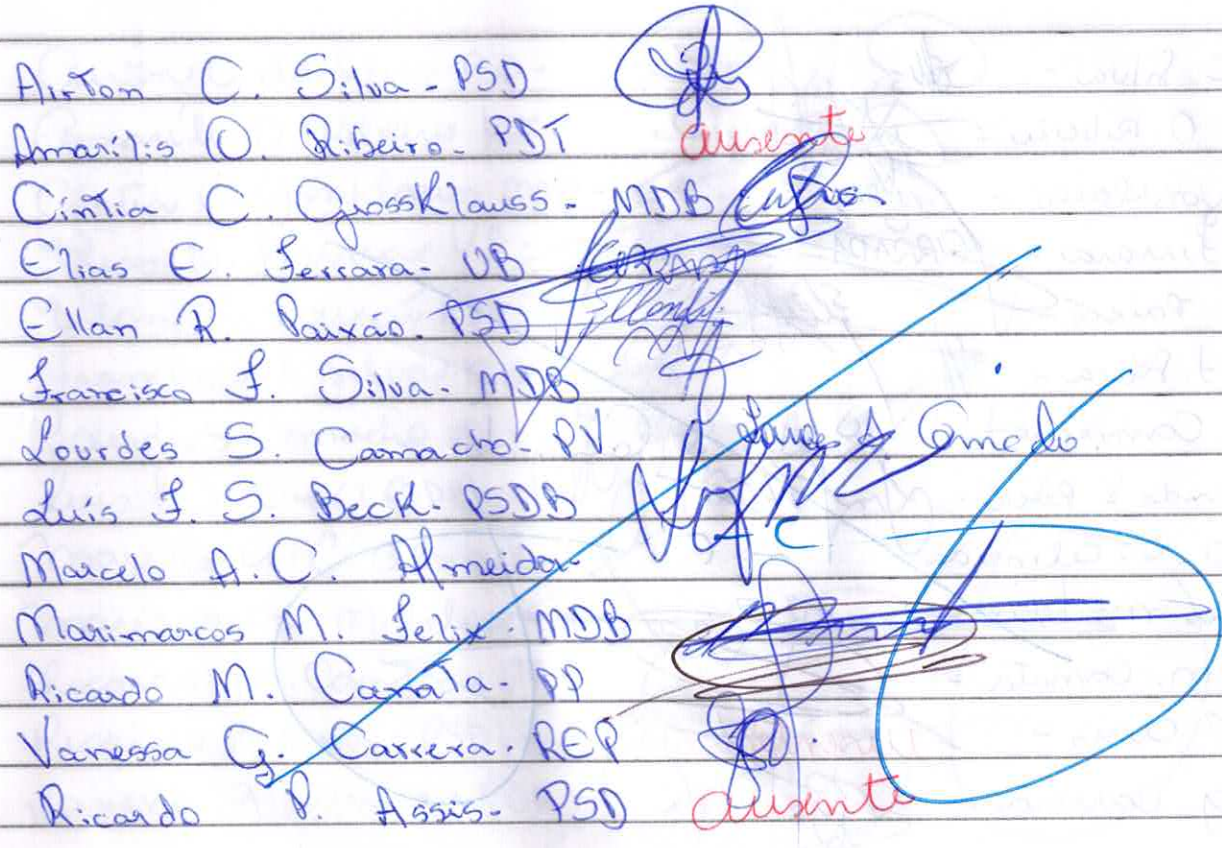 Airton C. Silva - PSD
Amarílis O. Ribeiro - PDT ausente
Cíntia C. GrossKlauss - MDB
Elias E. Ferrara - UB
Ellan R. Paixão - PSD
Francisco F. Silva - MDB
Lourdes S. Camacho - PV.
Luís F. S. Beck - PSDB
Marcelo A. C. Almeida -
Marimarcos M. Felix - MDB
Ricardo M. Canata - PP
Vanessa G. Carrera - REP
Ricardo P. Assis - PSD ausente